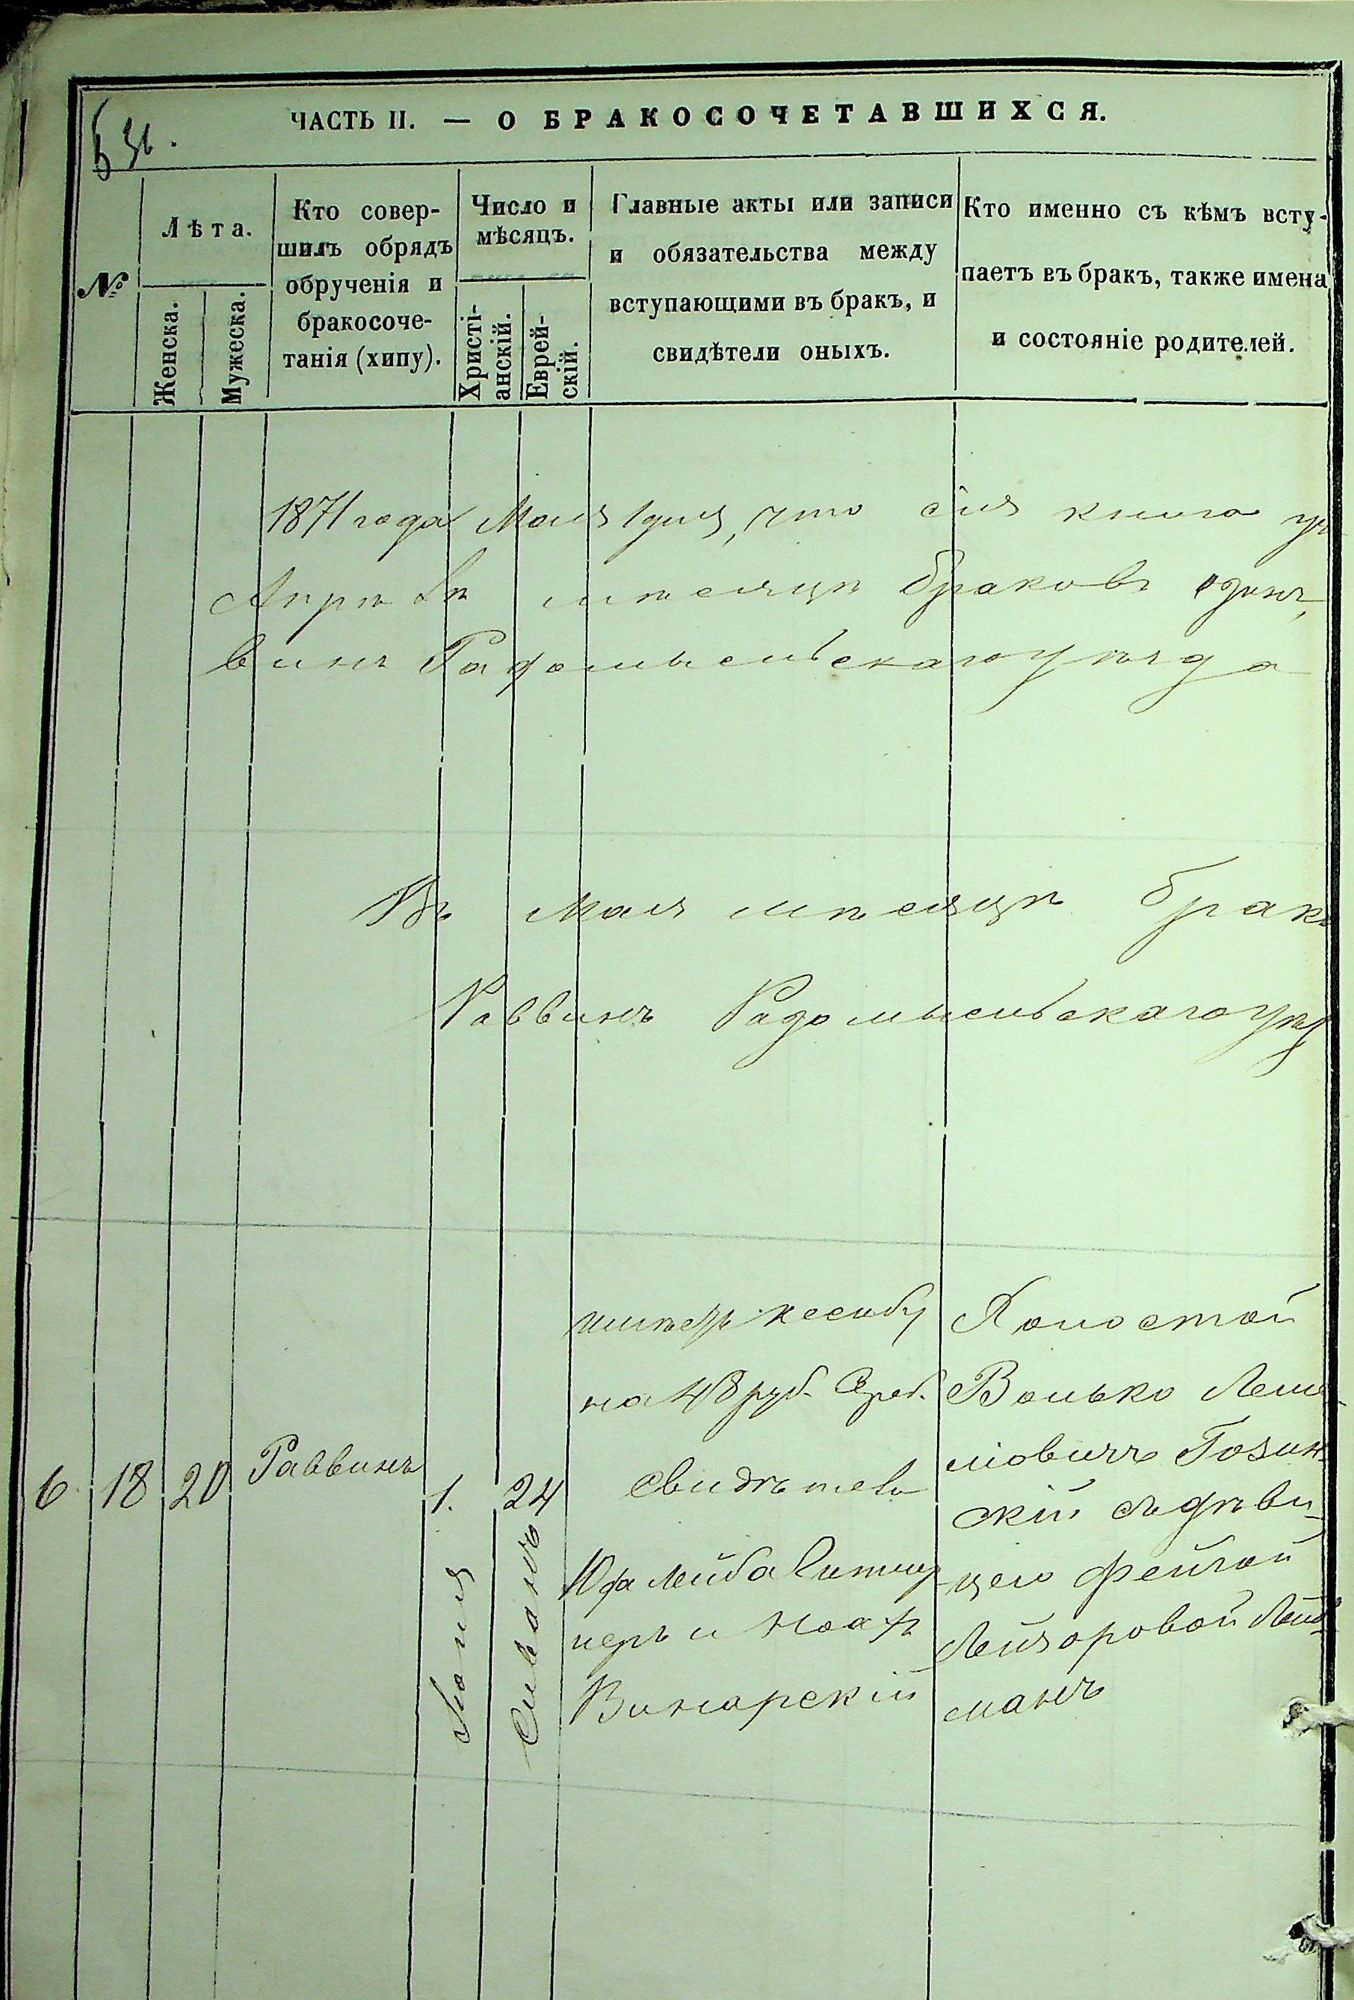 ЧАСТЬ II. — О БРАКОСОЧЕТАВШИХСЯ.
№
Лѣта.
Женска.
Мужеска.
Кто совер-
шилъ обрядъ
обрученія и
бракосоче-
танія (хипу).
Число и
мѣсяцъ.
Христі-
анскій.
Еврей-
скій.
Главные акты или записи
и обязательства между
вступающими въ бракъ, и
свидѣтели оныхъ.
Кто именно съ кѣмъ всту-
паетъ въ бракъ, также имена
и состояніе родителей.
1871 года Мая 1 дня, что сія книга
мѣсяцѣ браковъ
винъ Радомысльскаго уѣзда
Въ Мая мѣсяцѣ брак
Раввинъ Радомысльскаго уѣз
6 18 20 Раввинъ 1. Іюня 24 Сиванъ
кесибу
на 48 руб. Сереб.
свидѣтели
Юфа Лейба
и
Винарскій
Холостой
Волько Лей
мовичъ Гозин
скій съ дѣви-
цею Фейгой
Лейзоровой
манъ